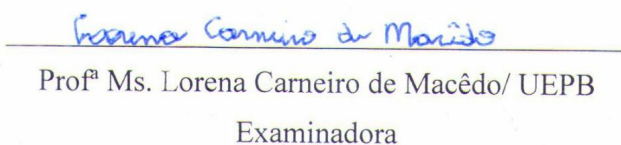 Lorena Carneiro de Macêdo
Profª Ms. Lorena Carneiro de Macêdo/ UEPB
Examinadora